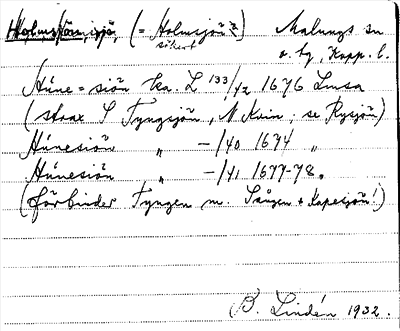 (= Holmsjön?) Malungs sn
säkert o. tg, Kopp. l.
Húne=siön ka. L 133/42 1676 Lmsa
(strax S Tyngsjön, N Kvin; se Rysjön)
Húnesiön „ —/40 1674 „
Húnesiön „ —/41 1677-78 „
(förbinder Tyngen m. Sången + Kapesjön!)
B. Lindén 1932.